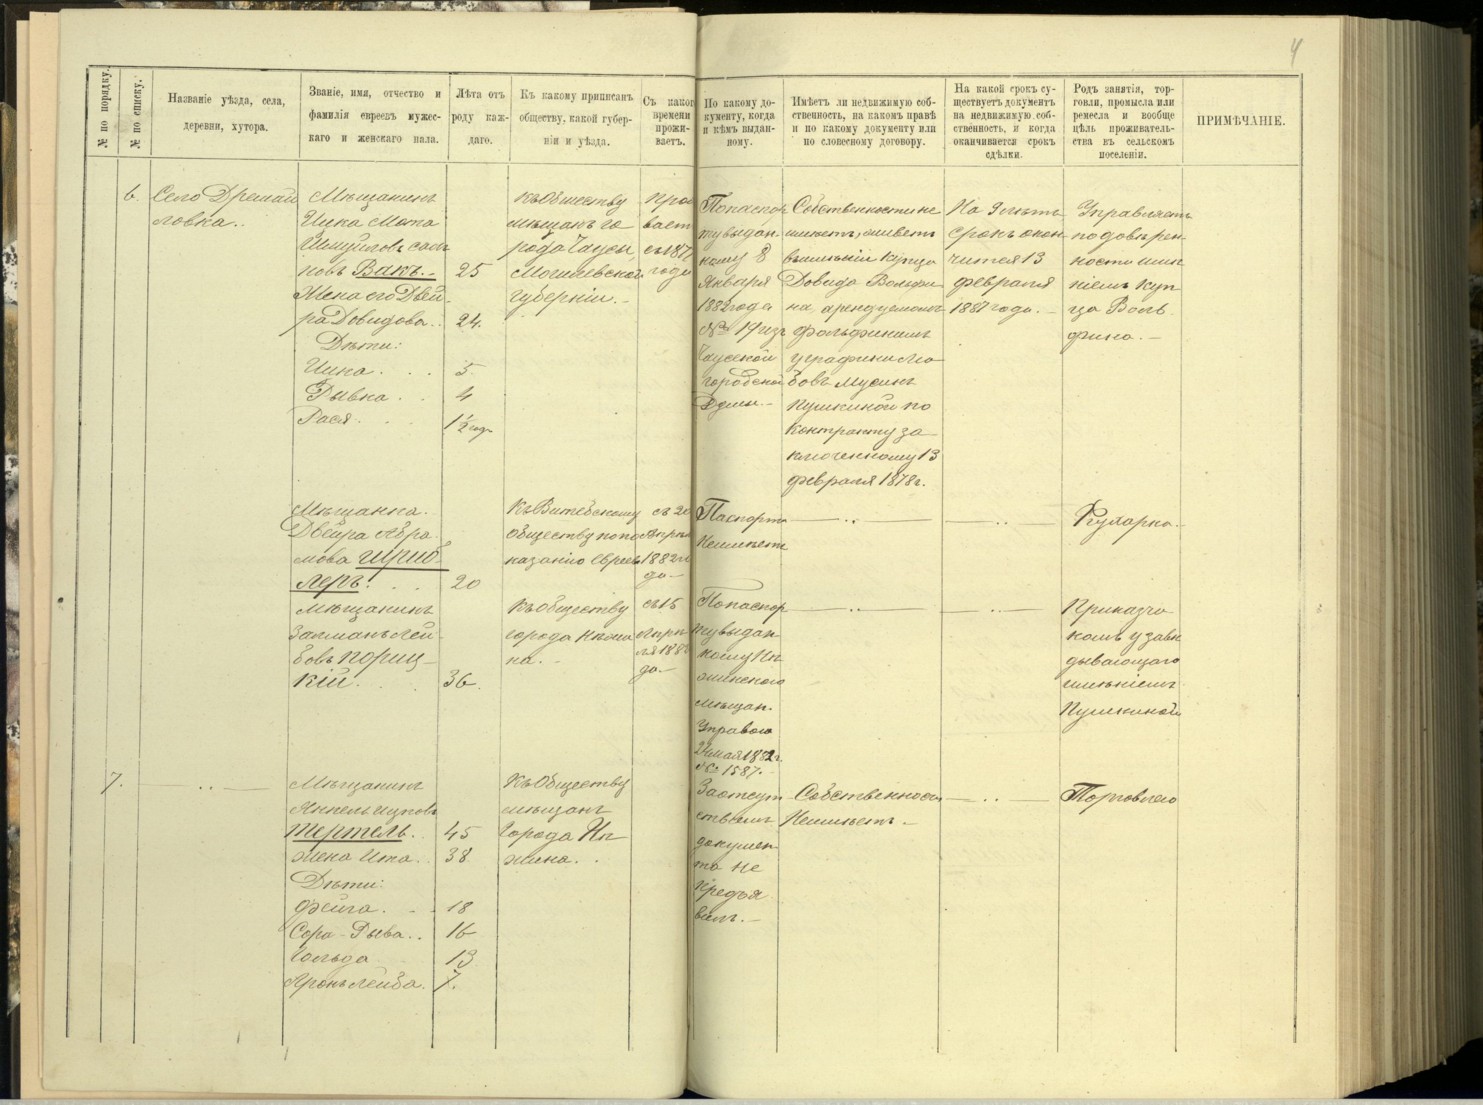 4
№ по порядку.
№ по списку.
Названіе уѣзда, села,
деревни, хутора.
Званіе, имя, отчество и
фамилія евреевъ мужес-
каго и женскаго пала.
Лѣта отъ
роду каж-
даго.
Къ какому приписанъ
обществу, какой губер-
ніи и уѣзда.
Съ каког
времени
прожи-
ваетъ.
По какому до-
кументу, когда
и кѣмъ выдан-
ному.
Имѣетъ ли недвижимую соб-
ственность, на какомъ правѣ
и по какому документу или
по словесному договору.
На какой срокъ су-
ществуетъ документъ
на недвижимую соб-
ственность, и когда
оканчивается срокъ
сдѣлки.
Родъ занятія, тор-
говли, промысла или
ремесла и вообще
цѣль проживатель-
ства въ сельскомъ
поселеніи.
ПРИМѢЧАНІЕ.
6
Село Дремай
ловка..
Мѣщанинъ
Ицка Мота
Шмуйловъ сынъ
Вакъ.
25
Жена его Двей-
ра Довидова..
24.
Дѣти:
5.
Рывка . .
4
Рася . .
1½ год.
Къ Обществу
мѣщанъ го
рода Чаусы
Могилевской
губерніи. –
прож
ваетъ
съ 187
года
По паспор
ту выдан
ному 8
Января
1882 года
№ 19 изъ
Чаусской
городской
Думы. –
Собственности не
имѣетъ, а живетъ
въ имѣніи Купца
Довида Вольфи
на, арендуемомъ
у графини Лю
бовь Мусинъ
Пушкиной по
Контракту за
ключенному 13
февраля 1878 г.
На 9 лѣтъ
срокъ окон
чится 13
февраля
1887 года. –
Управляетъ
по довѣрен-
ности имѣ
ніемъ Куп
ца Воль
фина. –
Мѣщанка
Двейра Абра
мова
леръ. . .
20
Къ Витебскому
обществу по по
казанію Евреевъ
съ 20
Апрѣл
1882 го
да –
Паспорта
Неимѣетъ
— .. —
— .. —
Кухарка.
Мѣщанинъ
Залманъ Лей-
бовъ Кориц-
кій. . .
36.
Къ Обществу
города Нѣжи
на. –
съ 15
Апрѣ
ля 188
да –
По паспор
ту выдан
ному Нѣ
жинскою
мѣщан.
Управою
мая 1882 г.
№ 1587. –
— .. —
— .. —
Приказчи
комъ у завѣ
дывающаго
имѣніемъ
Пушкиной
7.
— .. —
Мѣщанинъ
Янкель Ицковъ
Тертель..
45
жена Ита..
38
Дѣти:
Фейга. . –
18
Сора-Рыва..
16
Гольда
13
Аронъ Лейба.
7.
Къ Обществу
мѣщанъ
Города Нѣ
жина. .
За отсут
ствіемъ
докумен
та не
предъя
вилъ. –
Собственности
Неимѣетъ. –
— .. —
Торговлею